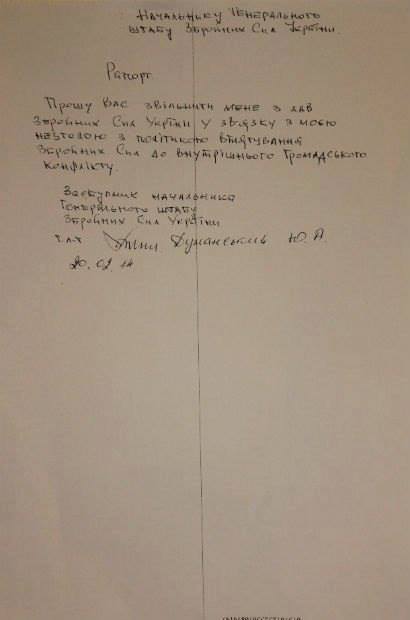 Начальнику Генерального
штабу Збройних Сил України.
Рапорт
Прошу Вас звільнити мене з лав
Збройних Сил України у зв'язку з моєю
незгодою з політикою втягування
Збройних Сил до внутрішнього громадського
конфлікту.
Заступник начальника
Генерального штабу
Збройних Сил України
г.л-т Думанський Ю. А.
20.02.14